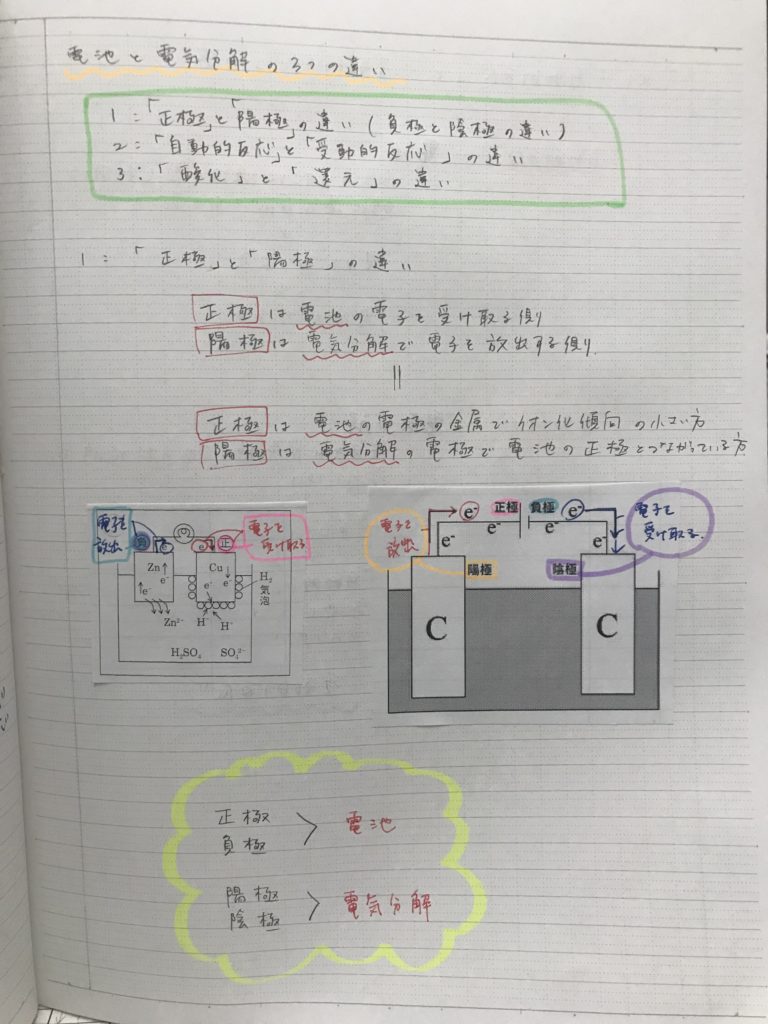 電池と電気分解の3つの違い
1:「正極」と「陽極」の違い(負極と陰極の違い)
2:「自動的反応」と「受動的反応」の違い
3:「酸化」と「還元」の違い
1:「正極」と「陽極」の違い
正極は電池の電子を受け取る側
陽極は電気分解で電子を放出する側
||
正極は電池の電極の金属でイオン化傾向の小さい方
陽極は電気分解の電極で電池の正極とつながっている方
電子を放出
負 e⁻
e⁻ 正
電子を受け取る
Zn
e⁻
e⁻
Zn²⁻
Cu
e⁻
e⁻
H⁻ H⁻
H₂気泡
H₂SO₄ SO₄²⁻
電子を放出
e⁻ 正極 負極 e⁻
電子を受け取る
e⁻ e⁻ e⁻ e⁻
陽極 陰極
C C
正極
負極
> 電池
陽極
陰極
> 電気分解